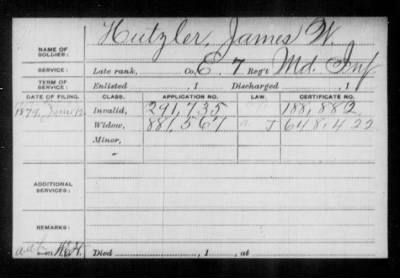 Hutzler, James W.
NAME OF SOLDIER:
SERVICE: Late rank, Co. E. 7 Reg't Md. Inf
TERM OF SERVICE: Enlisted , 1 Discharged , 1
DATE OF FILING. CLASS. APPLICATION NO. LAW. CERTIFICATE NO.
1879, June 12 Invalid, 291,735 188,882
Widow, 881,561 J 648,422
Minor,
ADDITIONAL SERVICES:
REMARKS:
Died , 1 , at